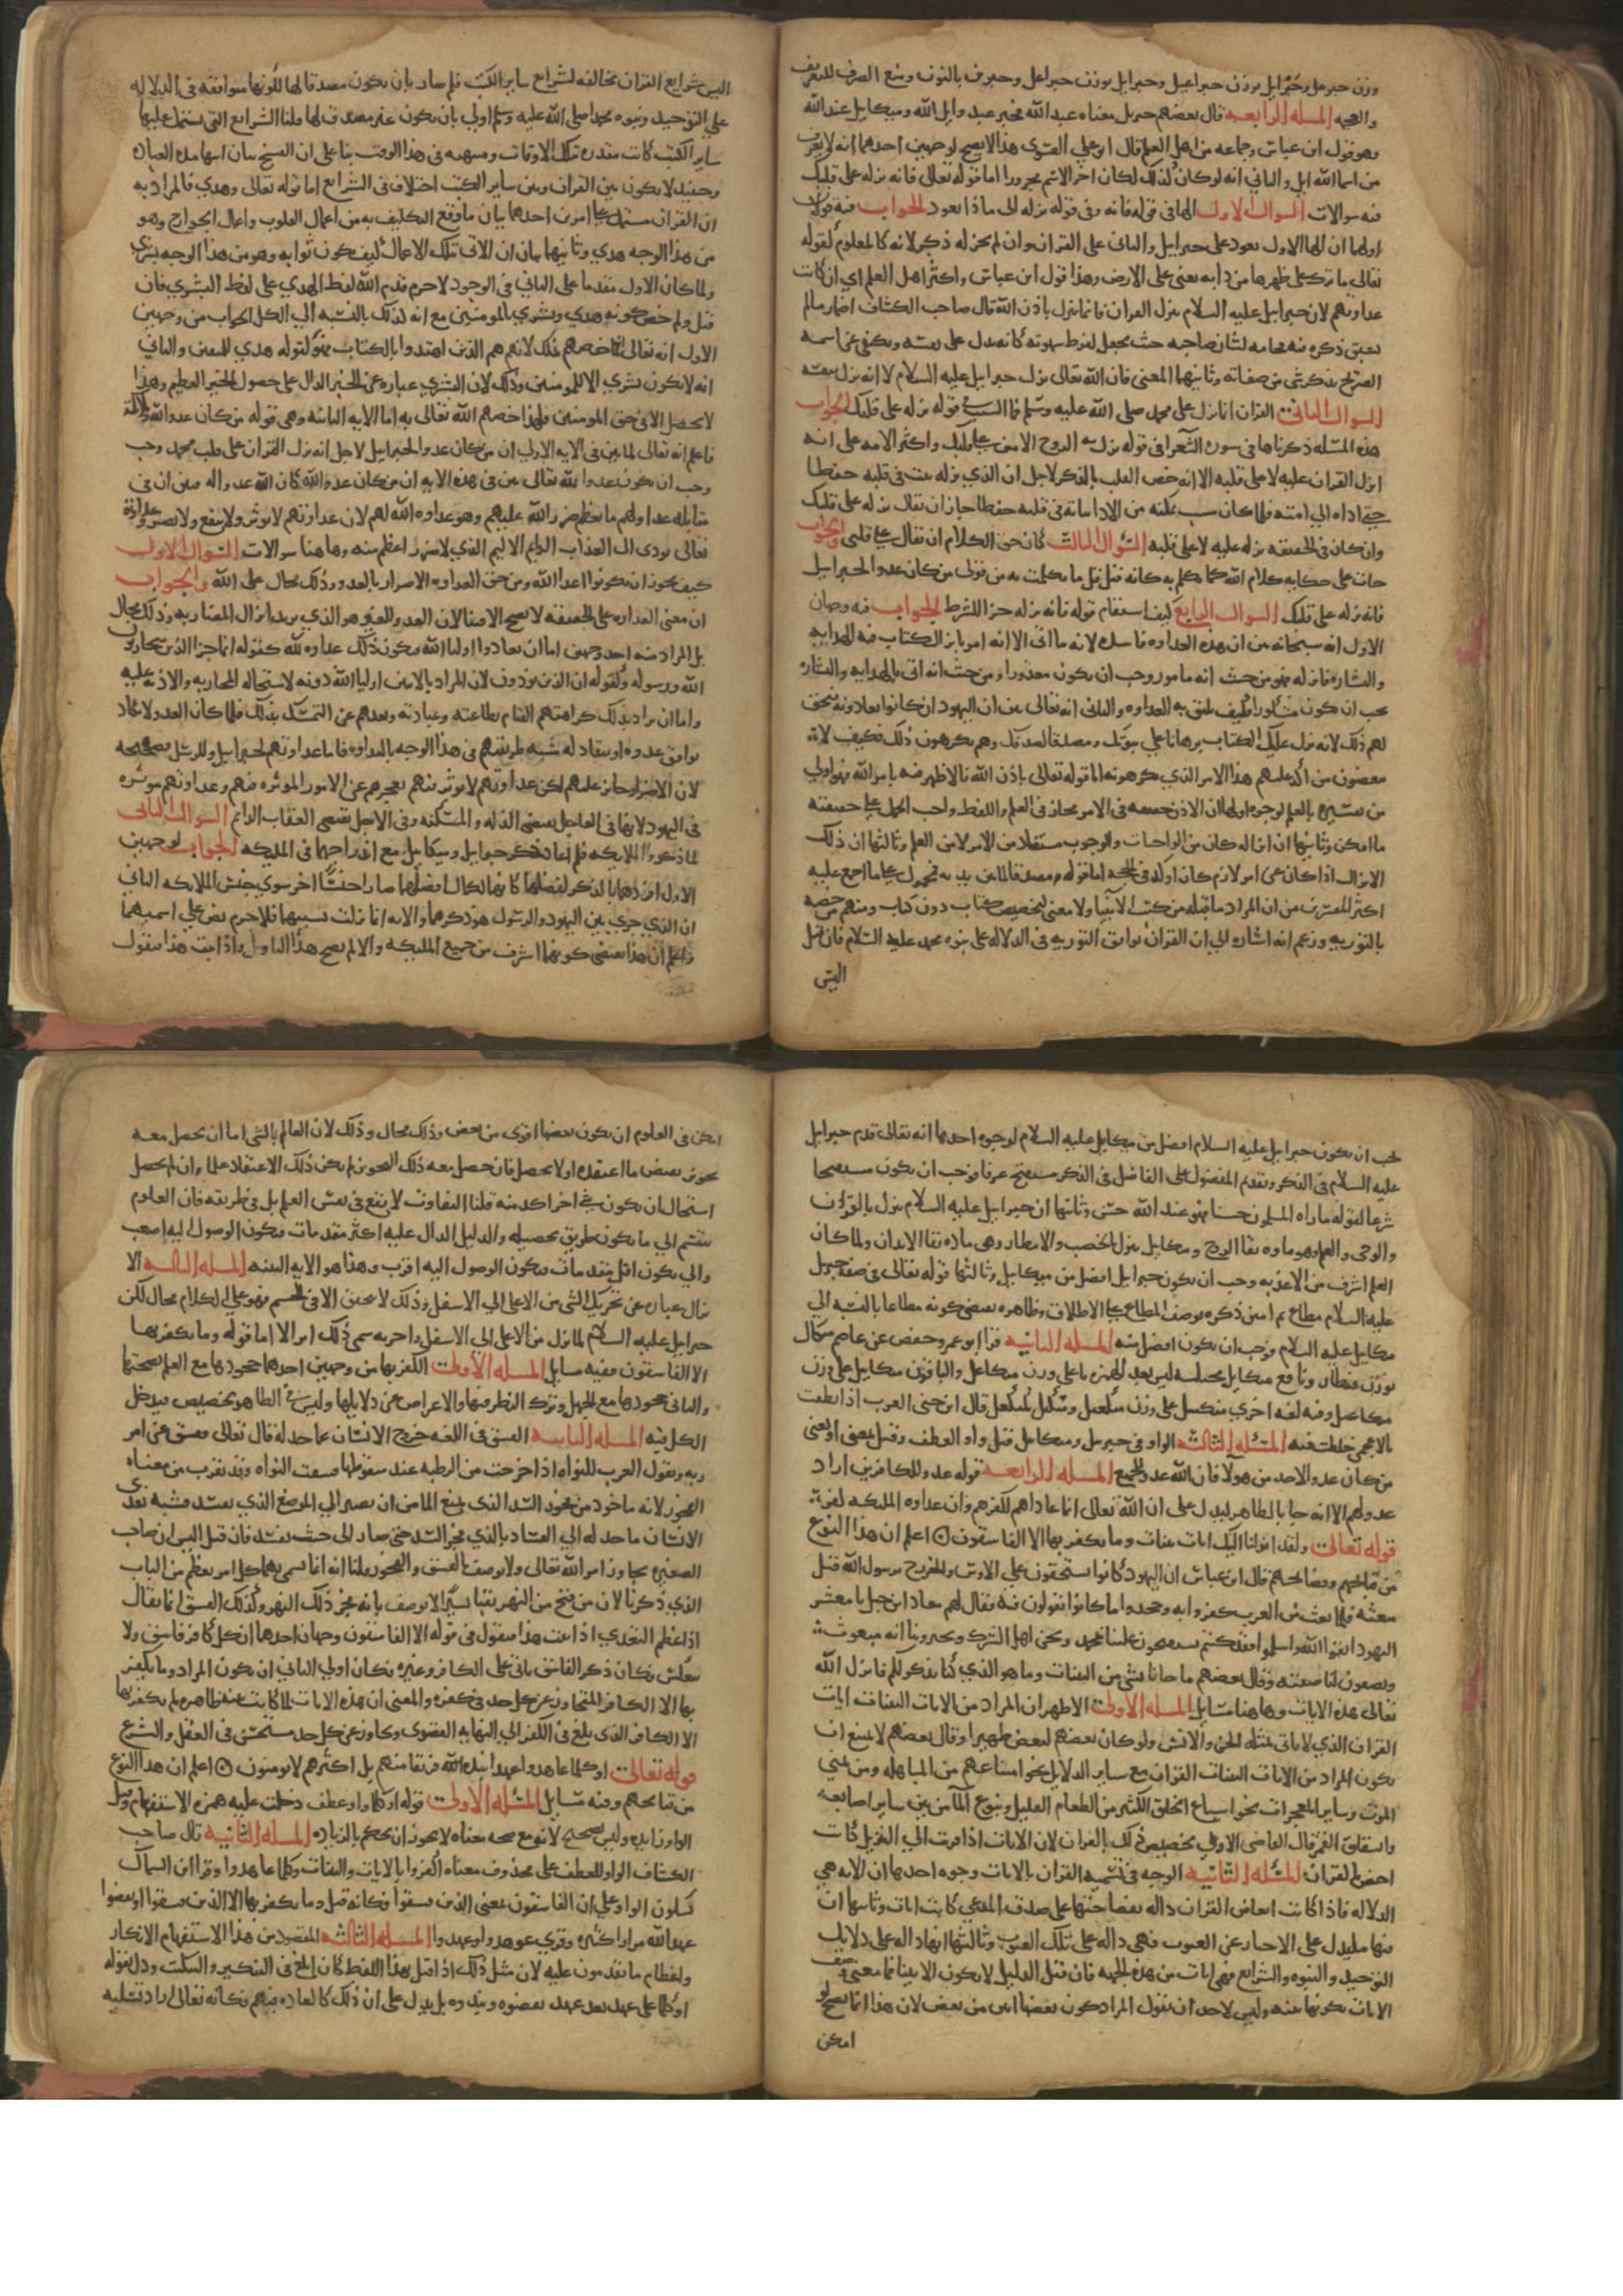 وزن جبرعل وجبرايل بوزن جبراعيل وجبرايل بوزن جبراعل وجبرين بالنون ومنع الصرف للتعريف
والعجمه المسله الرابعه قال بعضهم جبريل معناه عبد الله فجبر عبد وايل الله وميكايل عبد الله
وهو قول ابن عباس وجماعه من اهل العلم قال ابو علي الفسوي هذا لا يصح لوجهين احدهما انه لا يعرف
من اسما الله ايل والثاني انه لو كان كذلك لكان اخر الاسم مجرورا اما قوله تعالى فانه نزله على قلبك
فيه سوالات السوال الاول الها في قوله فانه وفي قوله نزله الى ماذا يعود الجواب فيه قولان
اولهما ان الها الاول يعود على جبرايل والثاني على القران وان لم يجر له ذكر لانه كالمعلوم لقوله
تعالى ما ترك على ظهرها من دابه يعني على الارض وهذا قول ابن عباس واكثر اهل العلم اي ان كانت
عداوتهم لان جبرايل عليه السلام ينزل القران فانما ينزل باذن الله قال صاحب الكشاف اضمار ما لم
يسبق ذكره فيه فخامه لشان صاحبه حيث يجعل لفرط شهرته كانه يدل على نفسه ويكفي عن اسمه
الصريح بذكر شي من صفاته وثانيهما المعنى فان الله تعالى نزل جبرايل عليه السلام لا انه نزل بنفسه
السوال الثاني القران انما نزل على محمد صلى الله عليه وسلم فما السبب في قوله نزله على قلبك الجواب
هذه المسله ذكرناها في سورة الشعرا في قوله نزل به الروح الامين على قلبك واكثر الامه على انه
انزل القران عليه لا على قلبه الا انه خص القلب بالذكر لاجل ان الذي نزله به ثبت في قلبه حفظا
حتى اداه الى امته فلما كان سبب تمكنه من الادا ثباته في قلبه حفظا جاز ان يقال نزله على قلبك
وان كان في الحقيقه نزله عليه لا على قلبه السوال الثالث كان حق الكلام ان يقال على قلبي والجواب
جات على حكايه كلام الله كما تكلم به كانه قيل قل ما تكلمت به من قولي من كان عدوا لجبرايل
فانه نزله على قلبك السوال الرابع كيف استقام قوله فانه نزله جزا للشرط الجواب فيه وجهان
الاول انه سبحانه بين ان هذه العداوه فاسده لانه ما اتى الا انه امر بانزال كتاب فيه الهدايه
والبشاره فانزله فهو من حيث انه مامور وجب ان يكون معذورا ومن حيث انه اتى بالهدايه والبشاره
يجب ان يكون مشكورا فكيف يليق به العداوه والثاني انه تعالى بين ان اليهود ان كانوا يعادونه فيحق
لهم ذلك لانه نزل عليك الكتاب برهانا على نبوتك ومصداقا لصدقك وهم يكرهون ذلك فكيف لا
يبغضون من اكد عليهم هذا الامر الذي كرهوه اما قوله تعالى باذن الله فالاظهر فيه بامر الله فهو اولى
من تفسيره بالعلم لوجوه اولها ان الاذن حقيقه في الامر مجاز في العلم واللفظ واجب الحمل على حقيقته
ما امكن وثانيها ان انزاله كان من الواجبات والوجوب مستفاد من الامر لا من العلم وثالثها ان ذلك
الانزال اذا كان عن امر لازم كان اوكد في الحجه اما قوله مصدقا لما بين يديه فمحمول على ما اجمع عليه
اكثر المفسرين من ان المراد ما قبله من كتب الانبيا ولا معنى لتخصيص كتاب دون كتاب ومنهم من خصه
بالتوريه وزعم انه اشاره الى ان القران يوافق التوريه في الدلاله على نبوه محمد عليه السلام فان قيل
اليس
اليس شرايع القران مخالفه لشرايع ساير الكتب فلم صار بان يكون مصدقا لها لكونها موافقه في الدلاله
على التوحيد ونبوه محمد صلى الله عليه وسلم اولى بان يكون غير مصدق لها قلنا الشرايع التي يشتمل عليها
ساير الكتب كانت مقدره بتلك الاوقات ومنتهيه في هذا الوقت بنا على ان النسخ بيان انتها مده العباده
وحينيذ لا يكون بين القران وبين ساير الكتب اختلاف في الشرايع اما قوله تعالى وهدى فالمراد به
ان القران مشتمل على امرين احدهما بيان ما وقع التكليف به من اعمال القلوب واعمال الجوارح وهو
من هذا الوجه هدى وثانيهما بيان ان الاتي بتلك الاعمال كيف يكون ثوابه وهو من هذا الوجه بشرى
ولما كان الاول مقدما على الثاني في الوجود لا جرم قدم الله لفظ الهدى على لفظ البشرى فان
قيل ولم خص كونه هدى وبشرى بالمومنين مع انه كذلك بالنسبه الى الكل الجواب من وجهين
الاول انه تعالى انما خصهم بذلك لانهم هم الذين اهتدوا بالكتاب فهو كقوله هدى للمتقين والثاني
انه لا يكون بشرى الا للمومنين وذلك لان البشرى عباره عن الخبر الدال على حصول الخير العظيم وهذا
لا يحصل الا في حق المومنين فلهذا خصهم الله تعالى به اما الايه الثانيه وهي قوله من كان عدوا لله وملايكته
فاعلم انه تعالى لما بين في الايه الاولى ان من كان عدوا لجبرايل لاجل انه نزل القران على قلب محمد وجب
وجب ان يكون عدوا لله تعالى بين في هذه الايه ان من كان عدوا لله كان الله عدوا له فبين ان في
مقابله عداوتهم ما يعظم ضرر الله عليهم وهو عداوه الله لهم لان عداوتهم لا توثر ولا تنفع ولا تضر وعداوته
تعالى تودي الى العذاب الدايم الاليم الذي لا ضرر اعظم منه وهاهنا سوالات السوال الاول
كيف يجوز ان يكونوا اعدا الله ومن حق العداوه الاضرار بالعدو وذلك محال على الله والجواب
ان معنى العداوه على الحقيقه لا يصح الا فينا لان العدو للغير هو الذي يريد انزال المضار به وذلك محال
بل المراد منه احد وجهين اما ان يعادوا اوليا الله فيكون ذلك عداوه لله كقوله انما جزا الذين يحاربون
الله ورسوله وكقوله ان الذين يوذون لان المراد بالايتين اوليا الله دونه لاستحاله المحاربه والاذيه عليه
واما ان يراد بذلك كراهتهم القيام بطاعته وعبادته وبعدهم عن التمسك بذلك فلما كان العدو لا يكاد
يوافق عدوه او ينقاد له شبه طريقتهم في هذا الوجه بالعداوه فاما عداوتهم لجبرايل وللرسل فصحيحه
لان الاضرار جايز عليهم لكن عداوتهم لا توثر فيهم لعجزهم عن الامور الموثره فيهم وعداوتهم موثره
في اليهود لانها في العاجل تقتضي الذله والمسكنه وفي الاجل تقتضي العقاب الدايم السوال الثاني
لما ذكروا الملايكه فلم اعاد ذكر جبرايل وميكايل مع اندراجهما في المليكه الجواب لوجهين
الاول افردهما بالذكر لفضلهما كانهما لكمال فضلهما صارا جنسا اخر سوى جنس الملايكه الثاني
ان الذي جرى بين اليهود والرسول هو ذكرهما والايه انما نزلت بسببهما فلا جرم نص على اسميهما
واعلم ان هذا يقتضي كونهما اشرف من جميع المليكه والا لم يصح هذا التاويل واذا ثبت هذا فنقول
يجب ان يكون جبرايل عليه السلام افضل من ميكايل عليه السلام لوجوه احدها انه تعالى قدم جبرايل
عليه السلام في الذكر وتقديم المفضول على الفاضل في الذكر مستقبح عرفا فوجب ان يكون مستقبحا
شرعا لقوله ما راه المسلمون حسنا فهو عند الله حسن وثانيها ان جبرايل عليه السلام ينزل بالقران
والوحي والعلم وهو ماده بقا الروح وميكايل ينزل بالخصب والامطار وهي ماده بقا الابدان ولما كان
العلم اشرف من الاغذيه وجب ان يكون جبرايل افضل من ميكايل وثالثها قوله تعالى في صفه جبريل
عليه السلام مطاع ثم امين ذكره بوصف المطاع على الاطلاق وظاهره يقتضي كونه مطاعا بالنسبه الى
ميكايل عليه السلام فوجب ان يكون افضل منه المسله الثانيه قرا ابو عمرو وحفص عن عاصم ميكال
بوزن قنطار ونافع ميكايل مختلسه ليس بعد الهمزه يا على وزن ميكاعل والباقون ميكايل على وزن
ميكاعيل وفيه لغه اخرى ميكييل على وزن ميكعيل ومكيل كمكعل قال ابن جني العرب اذا نطقت
بالاعجمي خلطت فيه المسله الثالثه الواو في جبريل وميكايل قيل واو العطف وقيل بمعنى او يعني
من كان عدوا لاحد من هولا فان الله عدو للجميع المسله الرابعه قوله عدو للكافرين اراد
عدو لهم الا انه جا بالظاهر ليدل على ان الله تعالى انما عاداهم لكفرهم وان عداوه المليكه كفر
قوله تعالى ولقد انزلنا اليك ايات بينات وما يكفر بها الا الفاسقون اعلم ان هذا النوع
من قبايحهم وفضايحهم قال ابن عباس ان اليهود كانوا يستفتحون على الاوس والخزرج برسول الله قبل
مبعثه فلما بعث من العرب كفروا به وجحدوا ما كانوا يقولون فيه فقال لهم معاذ ابن جبل يا معشر
اليهود اتقوا الله واسلموا فقد كنتم تستفتحون علينا بمحمد ونحن اهل الشرك وتخبرونا انه مبعوث
وتصفون لنا صفته وقال بعضهم ما جانا بشي من البينات وما هو الذي كنا نذكر لكم فانزل الله
تعالى هذه الايات وهاهنا مسايل المسله الاولى الاظهر ان المراد من الايات البينات ايات
القران الذي لا ياتي بمثله الجن والانس ولو كان بعضهم لبعض ظهيرا وقال بعضهم لا يمتنع ان
يكون المراد من الايات البينات القران مع ساير الدلايل نحو امتناعهم من المباهله ومن تمني
الموت وساير المعجزات نحو اشباع الخلق الكثير من الطعام القليل ونبوع الما من بين ساير اصابعه
وانشقاق القمر قال القاضي الاولى تخصيص ذلك بالقران لان الايات اذا قرنت الى التنزيل كانت
اخص بالقران المسله الثانيه الوجه في تسميه القران بالايات وجوه احدها ان الايه هي
الدلاله فاذا كانت ابعاض القران داله بفصاحتها على صدق المدعي كانت ايات وثانيها ان
منها ما يدل على الاخبار عن الغيوب فهي داله على تلك الغيوب وثالثها انها داله على دلايل
التوحيد والنبوه والشرايع فهي ايات من هذه الجهه فان قيل الدليل لا يكون الا بينا فما معنى وصف
الايات بكونها بينه وليس لاحد ان يقول المراد كون بعضها ابين من بعض لان هذا انما يصح لو
امكن
امكن في العلوم ان يكون بعضها اقوى من بعض وذلك محال وذلك لان العالم بالشي اما ان يحصل معه
تجويز نقيض ما اعتقده او لا يحصل فان حصل معه ذلك التجويز لم يكن ذلك الاعتقاد علما وان لم يحصل
استحال ان يكون شي اخر اكد منه قلنا التفاوت لا يقع في نفس العلم بل في طريقه فان العلوم
تنقسم الى ما يكون طريق تحصيله والدليل الدال عليه اكثر مقدمات فيكون الوصول اليه اصعب
والى يكون اقل مقدمات فيكون الوصول اليه اقرب وهذا هو الايه البينه المسله الثالثه الانزال
عباره عن تحريك الشي من الاعلى الى الاسفل وذلك لا يتحقق الا في الجسم فهو على الكلام محال لكن
جبرايل عليه السلام لما نزل من الاعلى الى الاسفل واخبر به سمي ذلك انزالا اما قوله وما يكفر بها
الا الفاسقون ففيه مسايل المسله الاولى الكفر بها من وجهين احدهما جحودها مع العلم بصحتها
والثاني جحودها مع الجهل وترك النظر فيها والاعراض عن دلايلها وليس في الظاهر تخصيص فيدخل
الكل فيه المسله الثانيه الفسق في اللغه خروج الانسان عما حد له قال تعالى ففسق عن امر
ربه وتقول العرب للنواه اذا خرجت من الرطبه عند سقوطها فسقت النواه وقد يقرب من معناه
الفجور لانه ماخوذ من فجور السد الذي يمنع الما من ان يصير الى الموضع الذي يفسد فشبه تعدي
الانسان ما حد له الى الفساد بالذي فجر السد حتى صار الى حيث يفسد فان قيل اليس ان صاحب
الصغيره تجاوز امر الله تعالى ولا يوصف بالفسق والفجور قلنا انه انما سمي بهما كل امر يعظم من الباب
الذي ذكرنا لان من فتح من النهر نقبا يسيرا لا يوصف بانه فجر ذلك النهر وكذلك الفسق انما يقال
اذا عظم التعدي اذا ثبت هذا فنقول في قوله الا الفاسقون وجهان احدهما ان كل كافر فاسق ولا
ينعكس فكان ذكر الفاسق ياتي على الكافر وغيره فكان اولى الثاني ان يكون المراد وما يكفر
بها الا الكافر المتجاوز عن كل حد في كفره والمعنى ان هذه الايات لما كانت بينه ظاهره لم يكفر بها
الا الكافر الذي بلغ في الكفر الى النهايه القصوى وتجاوز عن كل حد مستحسن في العقل والشرع
قوله تعالى او كلما عاهدوا عهدا نبذه الله فريق منهم بل اكثرهم لا يومنون اعلم ان هذا النوع
من قبايحهم وفيه مسايل المسله الاولى قوله او كلما واو عطف دخلت عليه همزه الاستفهام وقيل
الواو زايده وليس بصحيح لانه مع صحه معناه لا يجوز ان يحكم بالزياده المسله الثانيه قال صاحب
الكشاف الواو للعطف على محذوف معناه اكفروا بالايات والبينات وكلما عاهدوا وقرا ابن السماك
بسكون الواو على ان الفاسقون بمعنى الذين فسقوا فكانه قيل وما يكفر بها الا الذين فسقوا او نقضوا
عهد الله مرارا كثيره وقري عوهدوا وعهدوا المسله الثالثه المقصود من هذا الاستفهام الانكار
واعظام ما يقدمون عليه لان مثل ذلك اذا قيل بهذا اللفظ كان ابلغ في التنكير والتبكيت ودل بقوله
او كلما على عهد بعد عهد نقضوه ونبذوه بل يدل على ان ذلك كالعاده فيهم فكانه تعالى اراد تسليه